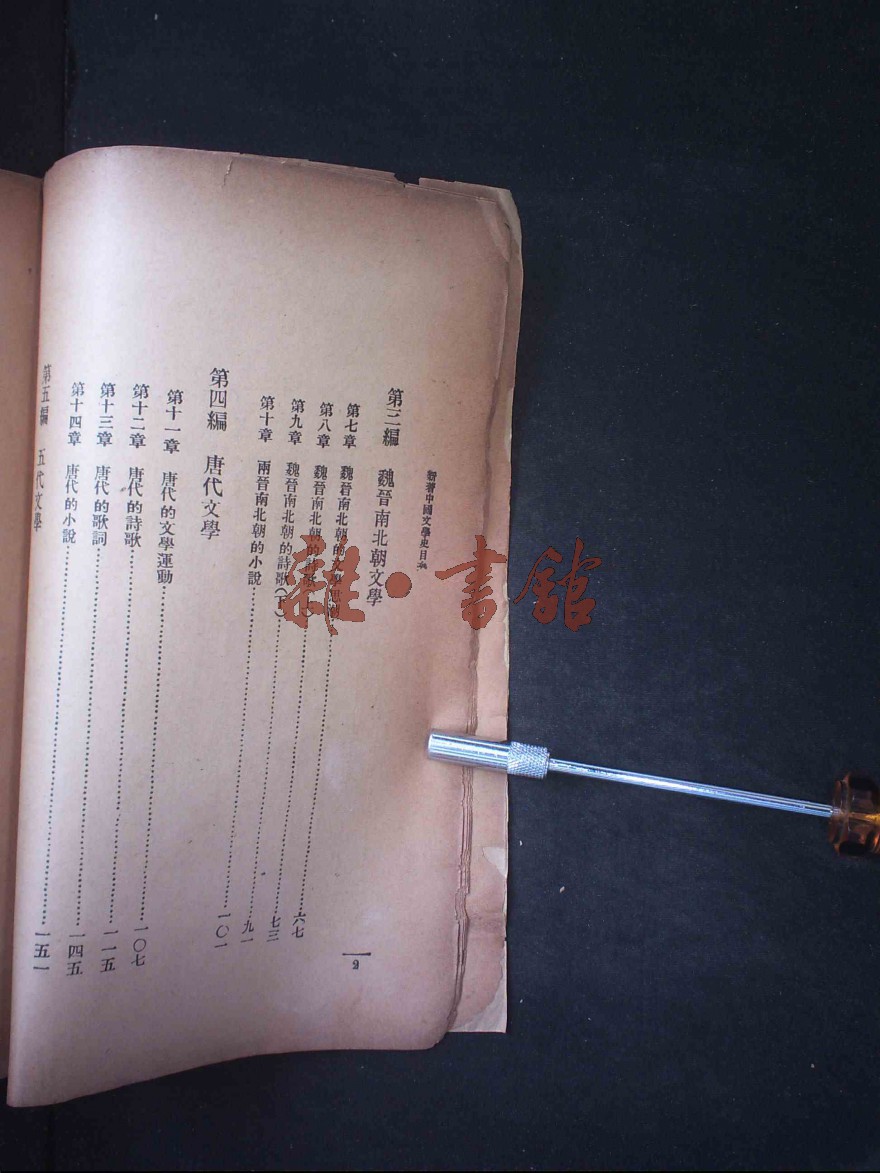 新著中國文學史目
第三編 魏晉南北朝文學
第七章 魏晉南北朝的文學思……六七
第八章 魏晉南北朝的詩歌(上)……七三
第九章 魏晉南北朝的詩歌(下)……九一
第十章 兩晉南北朝的小說……一〇一
第四編 唐代文學
第十一章 唐代的文學運動……一〇七
第十二章 唐代的詩歌……一一五
第十三章 唐代的歌詞……一四五
第十四章 唐代的小說……一五一
第五編 五代文學
2
雜·書館